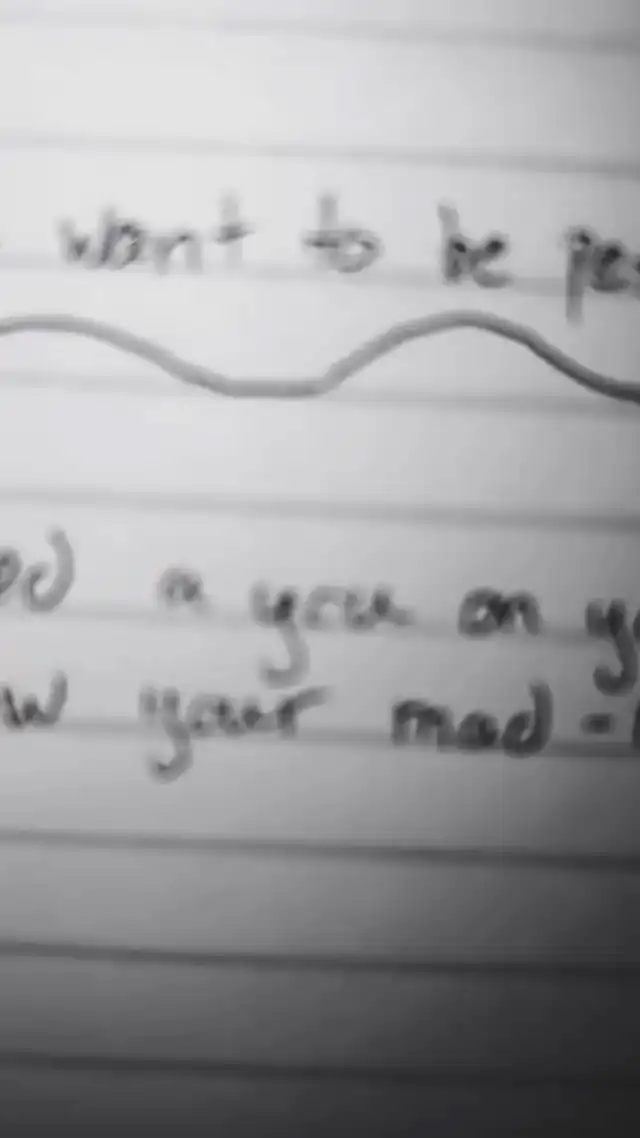 want to be pe
ed in you on y
w your mad -